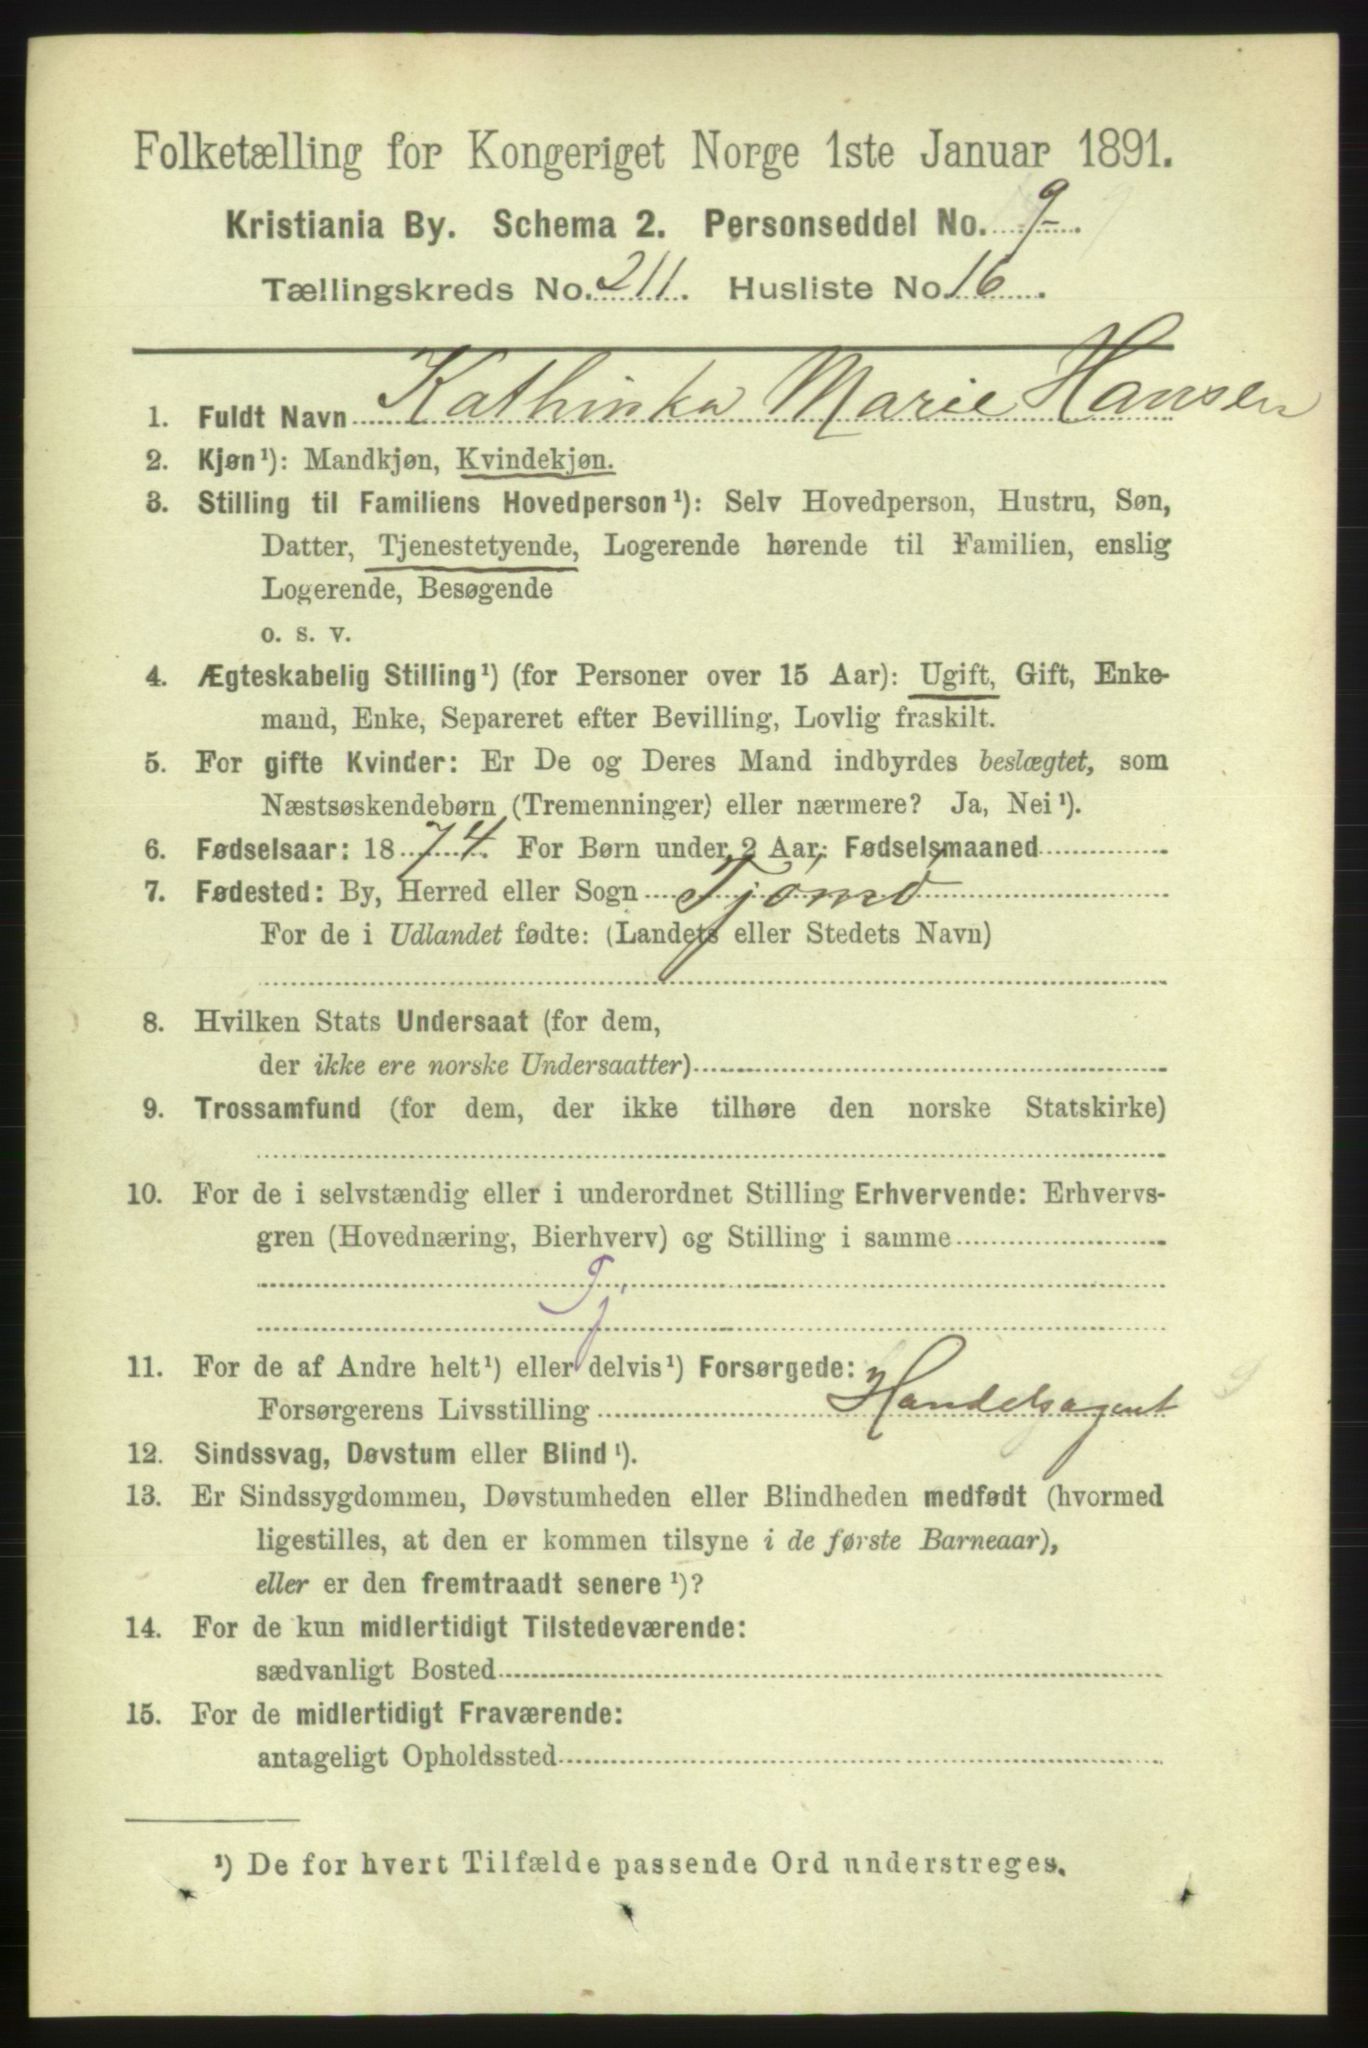 Folketælling for Kongeriget Norge 1ste Januar 1891.
Kristiania By. Schema 2. Personseddel No. 9
Tællingskreds No. 211. Husliste No. 16.
1. Fuldt Navn Kathinka Marie Hansen
2. Kjøn¹): Mandkjøn, Kvindekjøn.
3. Stilling til Familiens Hovedperson¹): Selv Hovedperson, Hustru, Søn,
Datter, Tjenestetyende, Logerende hørende til Familien, enslig
Logerende, Besøgende
o. s. v.
4. Ægteskabelig Stilling¹) (for Personer over 15 Aar): Ugift, Gift, Enke-
mand, Enke, Separeret efter Bevilling, Lovlig fraskilt.
5. For gifte Kvinder: Er De og Deres Mand indbyrdes beslægtet, som
Næstsøskendebørn (Tremenninger) eller nærmere? Ja, Nei¹).
6. Fødselsaar: 1874. For Børn under 2 Aar: Fødselsmaaned
7. Fødested: By, Herred eller Sogn Tjømø
For de i Udlandet fødte: (Landets eller Stedets Navn)
8. Hvilken Stats Undersaat (for dem,
der ikke ere norske Undersaatter)
9. Trossamfund (for dem, der ikke tilhøre den norske Statskirke)
10. For de i selvstændig eller i underordnet Stilling Erhvervende: Erhvervs-
gren (Hovednæring, Bierhverv) og Stilling i samme
Tj
11. For de af Andre helt¹) eller delvis¹) Forsørgede:
Forsørgerens Livsstilling Handelsagent
12. Sindssvag, Døvstum eller Blind¹).
13. Er Sindssygdommen, Døvstumheden eller Blindheden medfødt (hvormed
ligestilles, at den er kommen tilsyne i de første Barneaar),
eller er den fremtraadt senere¹)?
14. For de kun midlertidigt Tilstedeværende:
sædvanligt Bosted
15. For de midlertidigt Fraværende:
antageligt Opholdssted
¹) De for hvert Tilfælde passende Ord understreges.